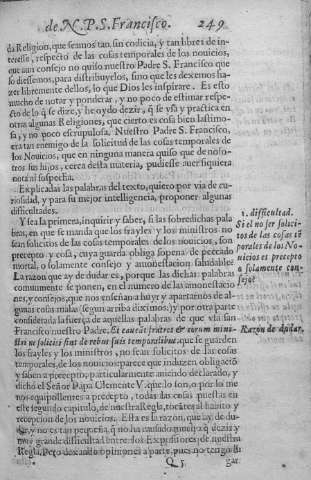 de N. P. S. Francisco. 249
da Religion, que seamos tan sin codicia, y tan libres de in-
teresse, respecto de las cosas temporales de los nouicios,
que aun consejo no quiso nuestro Padre S. Francisco que
lo diessemos, para distribuyrlos, sino que les dexemos ha-
zer libremente dellos, lo que Dios les inspirare. Es esto
mucho de notar y ponderar, y no poco de estimar respe-
cto de lo q̃ se dize, y he oydo dezir, q̃ se vsa y practica en
otra algunas Religiones, que cierto es cosa bien lastimo-
sa, y no poco escrupulosa. Nuestro Padre S. Francisco,
era tan enemigo de la solicitud de las cosas temporales de
los Nouicios, que en ninguna manera quiso que de noso-
tros sus hijos, cerca desta materia, pudiesse auer siquiera
nota ni sospecha.
Explicadas las palabras del texto, quiero por via de cu-
riosidad, y para su mejor inteligencia, proponer algunas
difficultades.
Y sea la primera, inquirir y saber, si las sobredichas pala
bras, en que se manda que los frayles y los ministros no
sean solicitos de las cosas temporales de los nouicios, son
precepto y cosa, cuya guarda obliga sopena de peccado
mortal, o solamente consejo y amonestacion saludable
La razon que ay de dudar es, porque las dichas palabras
comunmente se ponen, en el numero de las amonestacio
nes, y consejos, que nos enseñan a huyr y apartarnos de al-
gunas cosas malas (segun arriba diximos) y por otra parte
considerada la fuerça de aquellas palabras de que vsa san
Francisco nuestro Padre. Et caueāt fratres & eorum mini-
stri ne soliciti sint de rebus suis temporalibus. que se guarden
los frayles y los ministros, no sean solicitos de las cosas
temporales, de los nouicios parece que induzen obligació
y saben a precepto, particularmente auiendo declarado, y
dicho el Señor Papa Clemente V. que lo son, o por lo me
nos equipollentes a precepto, todas las cosas puestas en
este segundo capitulo, de nuestra Regla, tocātes al habito y
recepcion de los nouicios. Esta es la razon, que ay de du-
dar, y no es tan pequeña, q̃ no ha causado mucho q̃ dezir y
muy grande difficultad entre los Expositores de nuestra
Regla. Pero dexando opiniones a parte, pues no tengo de
Q 5 gas
1. difficultad.
Si el no ser solici-
tos de las cosas tē
porales de los No-
uicios es precepto
o solamente con-
sejo?
Razon de dudar.